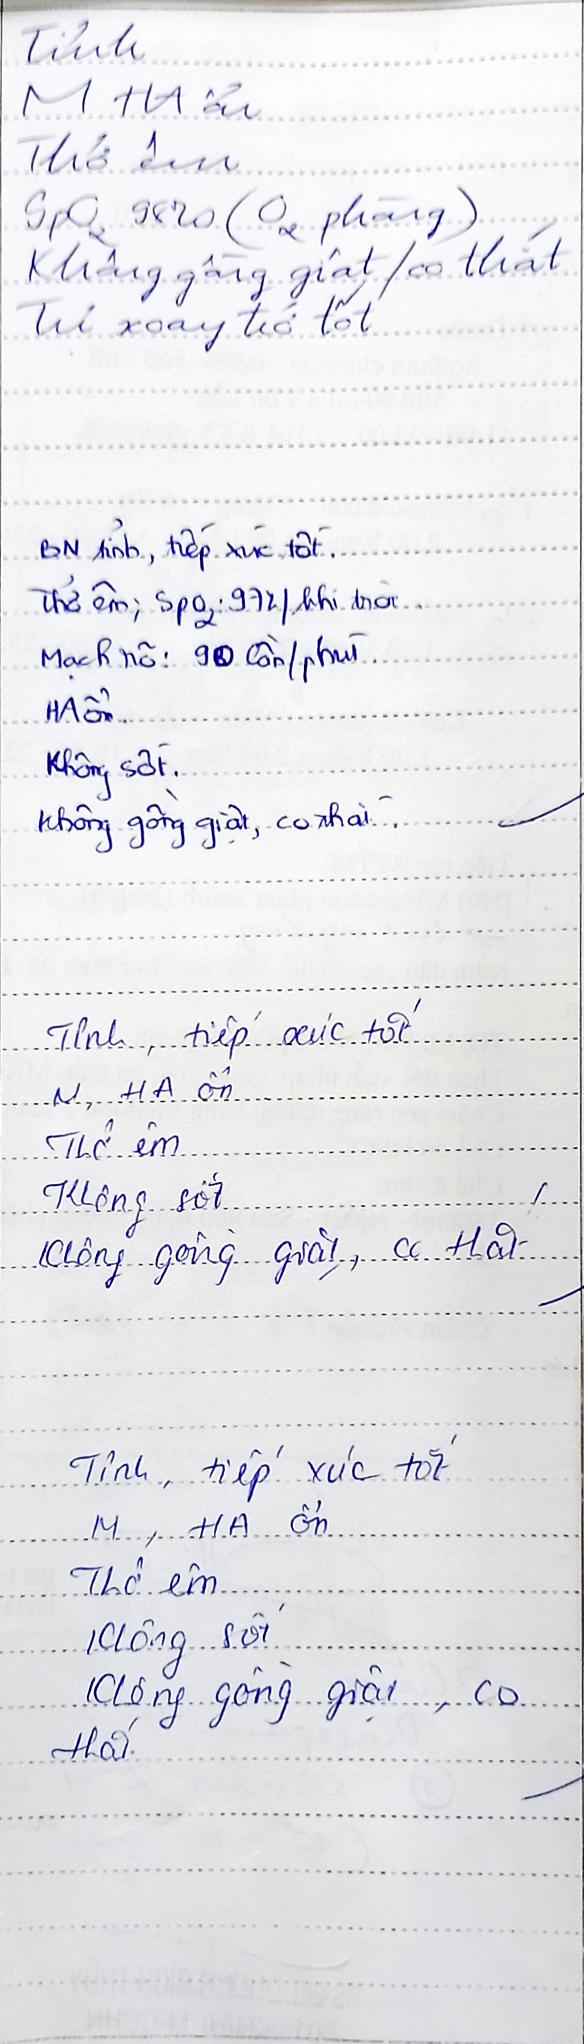 Tỉnh
M HA ổn
Thở êm
SpO2 98% (O2 phòng)
Không gồng giật/co thắt
Tự xoay trở tốt
BN tỉnh, tiếp xúc tốt.
Thở êm; SpO2: 97%/khí trời.
Mạch rõ: 90 lần/phút.
HA ổn.
Không sốt.
Không gồng giật, co thắt.
Tỉnh, tiếp xúc tốt
M, HA ổn
Thở êm
Không sốt
Không gồng giật, co thắt
Tỉnh, tiếp xúc tốt
M, HA ổn
Thở êm
Không sốt
Không gồng giật, co
thắt